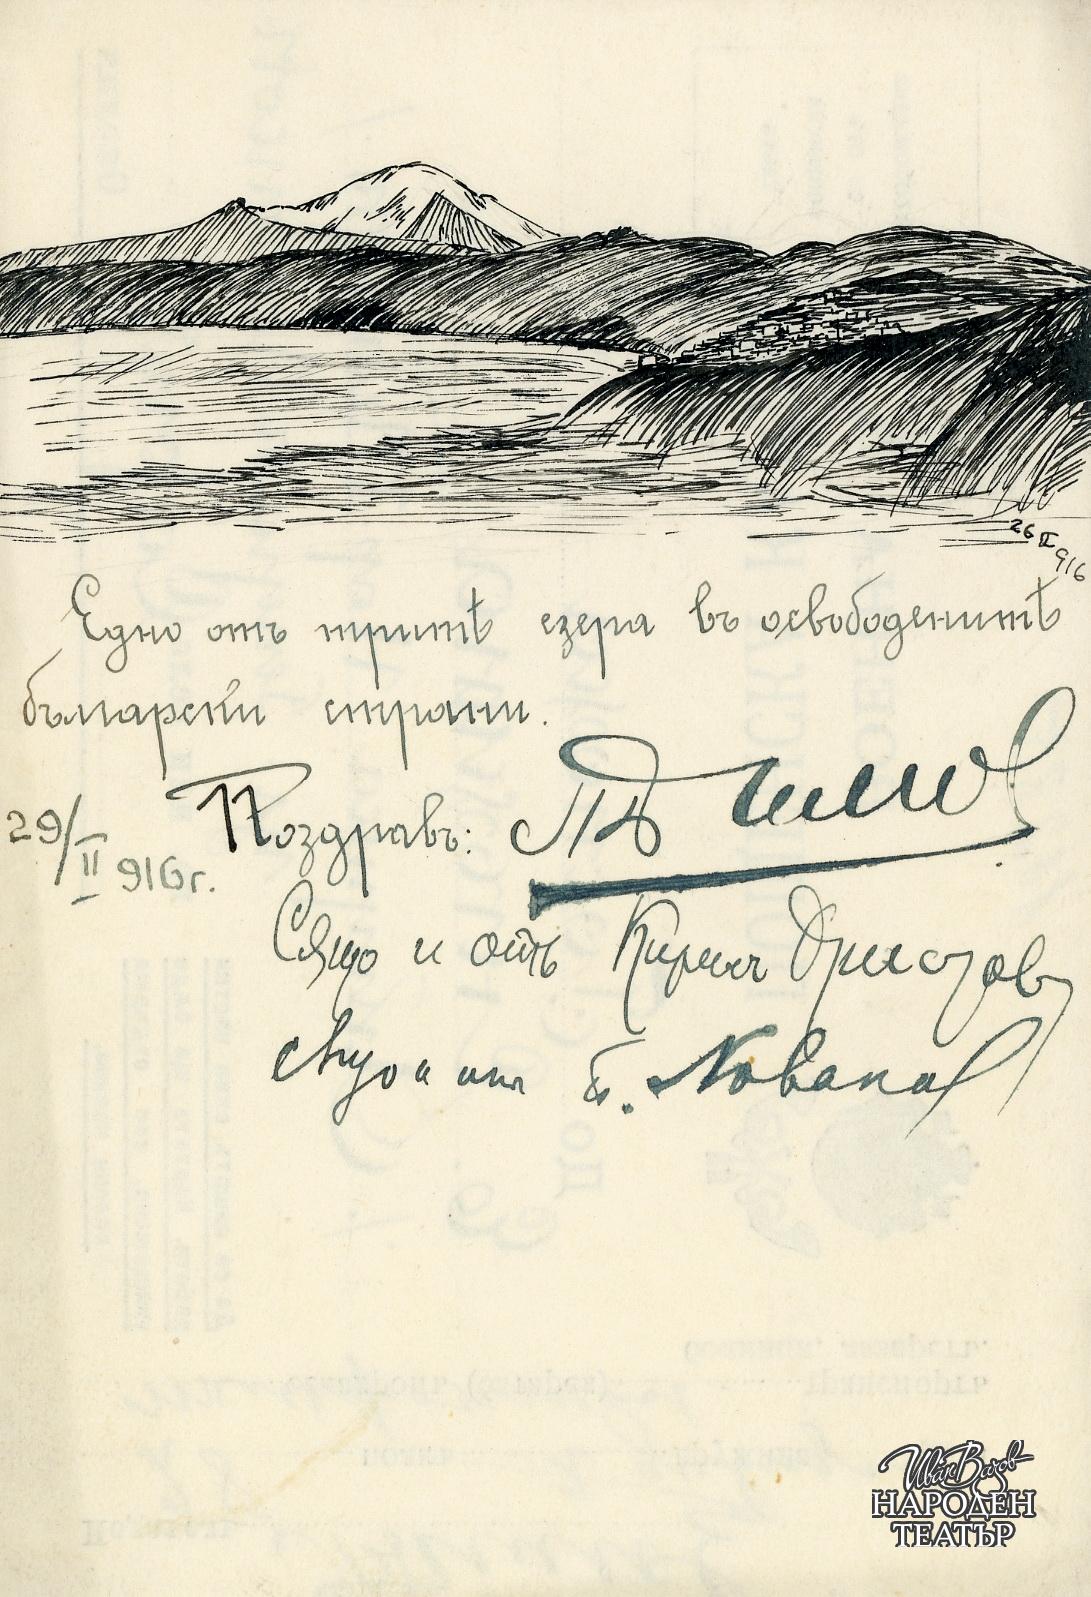 26 II 916
Едно отъ тритѣ езера въ освободенитѣ
български страни.
29/II 916 г. Поздравъ:
Също и отъ Кирилъ Христовъ
Също и отъ
Иван Вазов
НАРОДЕН
ТЕАТЪР